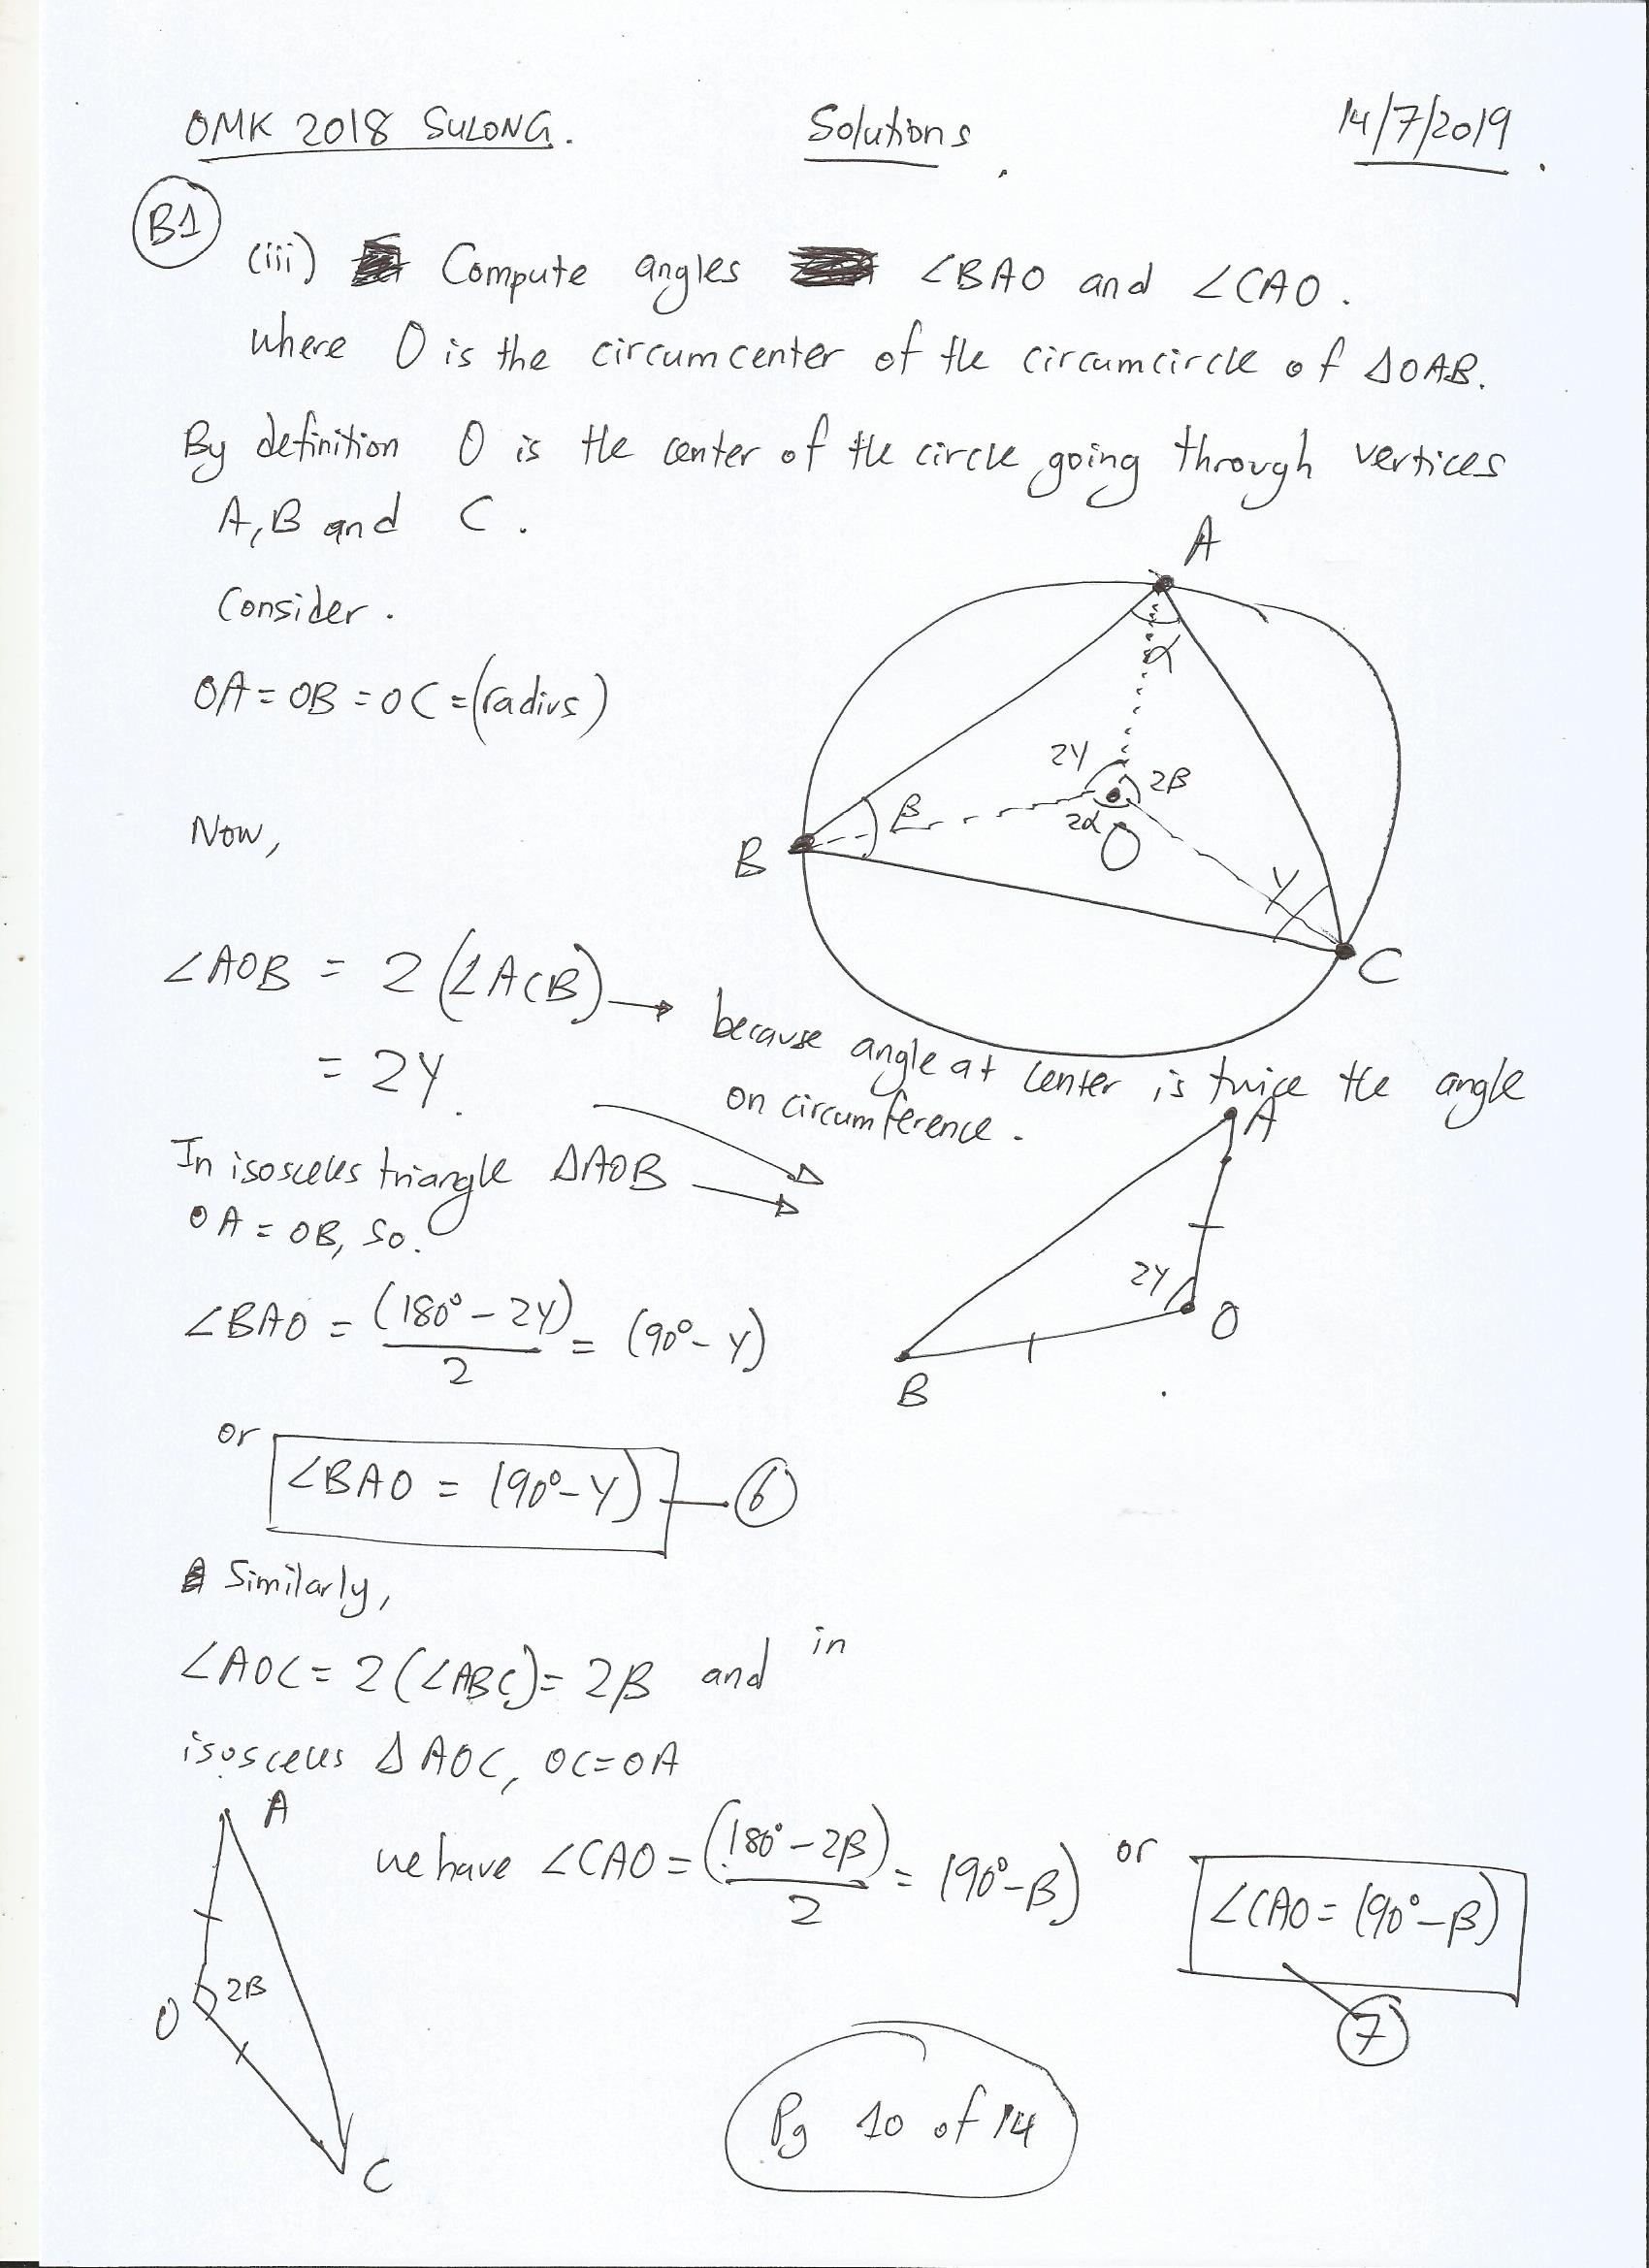 OMK 2018 SULONG. Solutions 14/7/2019
B1
(iii) Compute angles ∠BAO and ∠CAO.
where O is the circumcenter of the circumcircle of ΔOAB.
By definition O is the center of the circle going through vertices
A, B and C.
A
Consider.
α
OA = OB = OC = (radius)
2γ
2β
β
2α
O
Now,
B
γ
C
∠AOB = 2(∠ACB) → because angle at center is twice the angle
on circumference.
= 2γ.
A
In isosceles triangle ΔAOB
OA = OB, so.
2γ
O
B
∠BAO = (180° - 2γ)/2 = (90° - γ)
or ∠BAO = (90° - γ) — 6
Similarly,
∠AOC = 2(∠ABC) = 2β and in
isosceles ΔAOC, OC = OA
A
we have ∠CAO = (180° - 2β)/2 = (90° - β) or ∠CAO = (90° - β)
2β
O
7
C
Pg 10 of 14